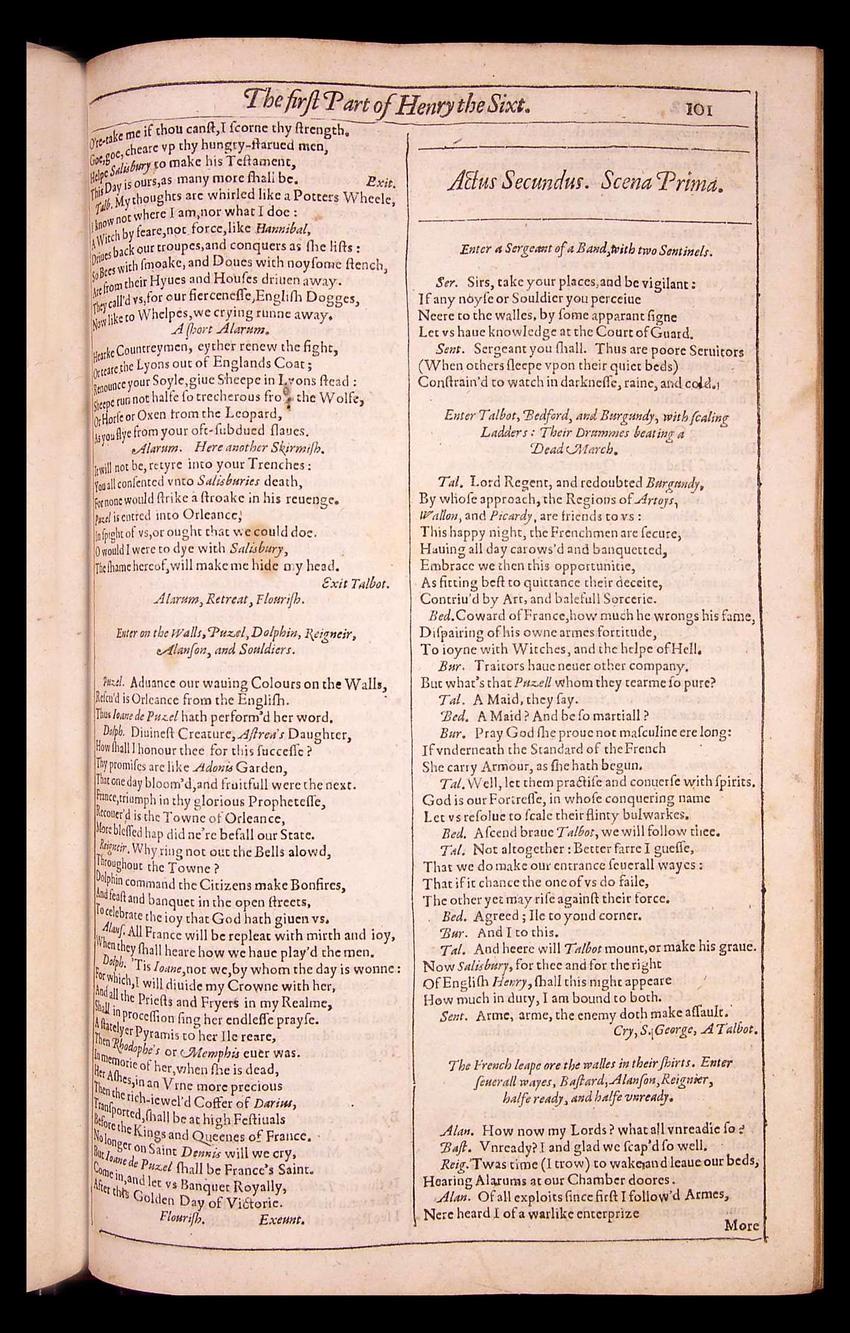 The first Part of Henry the Sixt.
101
O're-take me if thou canst, I scorne thy strength.
Goe, goe, cheare vp thy hungry-starued men,
Helpe Salisbury to make his Testament,
This Day is ours, as many more shall be. Exit.
Talb. My thoughts are whirled like a Potters Wheele,
I know not where I am, nor what I doe:
A Witch by feare, not force, like Hannibal,
Driues back our troupes, and conquers as she lists:
So Bees with smoake, and Doues with noysome stench,
Are from their Hyues and Houses driuen away.
They call'd vs, for our fiercenesse, English Dogges,
Now like to Whelpes, we crying runne away.
A short Alarum.
Hearke Countreymen, eyther renew the fight,
Or teare the Lyons out of Englands Coat;
Renounce your Soyle, giue Sheepe in Lyons stead:
Sheepe run not halfe so trecherous fro the Wolfe,
Or Horse or Oxen from the Leopard,
As you flye from your oft-subdued slaues.
Alarum. Here another Skirmish.
It will not be, retyre into your Trenches:
You all consented vnto Salisburies death,
For none would strike a stroake in his reuenge.
Puzel is entred into Orleance,
In spight of vs, or ought that we could doe.
O would I were to dye with Salisbury,
The shame hereof, will make me hide my head.
Exit Talbot.
Alarum, Retreat, Flourish.
Enter on the Walls, Puzel, Dolphin, Reigneir,
Alanson, and Souldiers.
Puzel. Aduance our wauing Colours on the Walls,
Rescu'd is Orleance from the English.
Thus Ioane de Puzel hath perform'd her word.
Dolph. Diuinest Creature, Astrea's Daughter,
How shall I honour thee for this successe?
Thy promises are like Adonis Garden,
That one day bloom'd, and fruitfull were the next.
France, triumph in thy glorious Prophetesse,
Recouer'd is the Towne of Orleance,
More blessed hap did ne're befall our State.
Reigneir. Why ring not out the Bells alowd,
Throughout the Towne?
Dolphin command the Citizens make Bonfires,
And feast and banquet in the open streets,
To celebrate the ioy that God hath giuen vs.
Alans. All France will be repleat with mirth and ioy,
When they shall heare how we haue play'd the men.
Dolph. 'Tis Ioane, not we, by whom the day is wonne:
For which, I will diuide my Crowne with her,
And all the Priests and Fryers in my Realme,
Shall in procession sing her endlesse prayse.
A statelyer Pyramis to her Ile reare,
Then Rhodophe's or Memphis euer was.
In memorie of her, when she is dead,
Her Ashes, in an Vrne more precious
Then the rich-iewel'd Coffer of Darius,
Transported, shall be at high Festiuals
Before the Kings and Queenes of France.
No longer on Saint Dennis will we cry,
But Ioane de Puzel shall be France's Saint.
Come in, and let vs Banquet Royally,
After this Golden Day of Victorie.
Flourish. Exeunt.
Actus Secundus. Scena Prima.
Enter a Sergeant of a Band, with two Sentinels.
Ser. Sirs, take your places, and be vigilant:
If any noyse or Souldier you perceiue
Neere to the walles, by some apparant signe
Let vs haue knowledge at the Court of Guard.
Sent. Sergeant you shall. Thus are poore Seruitors
(When others sleepe vpon their quiet beds)
Constrain'd to watch in darknesse, raine, and cold.
Enter Talbot, Bedford, and Burgundy, with scaling
Ladders: Their Drummes beating a
Dead March.
Tal. Lord Regent, and redoubted Burgundy,
By whose approach, the Regions of Artoys,
Wallon, and Picardy, are friends to vs:
This happy night, the Frenchmen are secure,
Hauing all day carows'd and banquetted,
Embrace we then this opportunitie,
As fitting best to quittance their deceite,
Contriu'd by Art, and balefull Sorcerie.
Bed. Coward of France, how much he wrongs his fame,
Dispairing of his owne armes fortitude,
To ioyne with Witches, and the helpe of Hell.
Bur. Traitors haue neuer other company.
But what's that Puzell whom they tearme so pure?
Tal. A Maid, they say.
Bed. A Maid? And be so martiall?
Bur. Pray God she proue not masculine ere long:
If vnderneath the Standard of the French
She carry Armour, as she hath begun.
Tal. Well, let them practise and conuerse with spirits.
God is our Fortresse, in whose conquering name
Let vs resolue to scale their flinty bulwarkes.
Bed. Ascend braue Talbot, we will follow thee.
Tal. Not altogether: Better farre I guesse,
That we do make our entrance seuerall wayes:
That if it chance the one of vs do faile,
The other yet may rise against their force.
Bed. Agreed; Ile to yond corner.
Bur. And I to this.
Tal. And heere will Talbot mount, or make his graue.
Now Salisbury, for thee and for the right
Of English Henry, shall this night appeare
How much in duty, I am bound to both.
Sent. Arme, arme, the enemy doth make assault.
Cry, S. George, A Talbot.
The French leape ore the walles in their shirts. Enter
seuerall wayes, Bastard, Alanson, Reignier,
halfe ready, and halfe vnready.
Alan. How now my Lords? what all vnreadie so?
Bast. Vnready? I and glad we scap'd so well.
Reig. 'Twas time (I trow) to wake and leaue our beds,
Hearing Alarums at our Chamber doores.
Alan. Of all exploits since first I follow'd Armes,
Nere heard I of a warlike enterprize
More